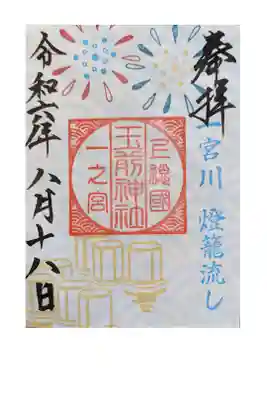 奉拝
一宮川 燈籠流し
上總國
玉前神社
一之宮
令和六年 八月十八日